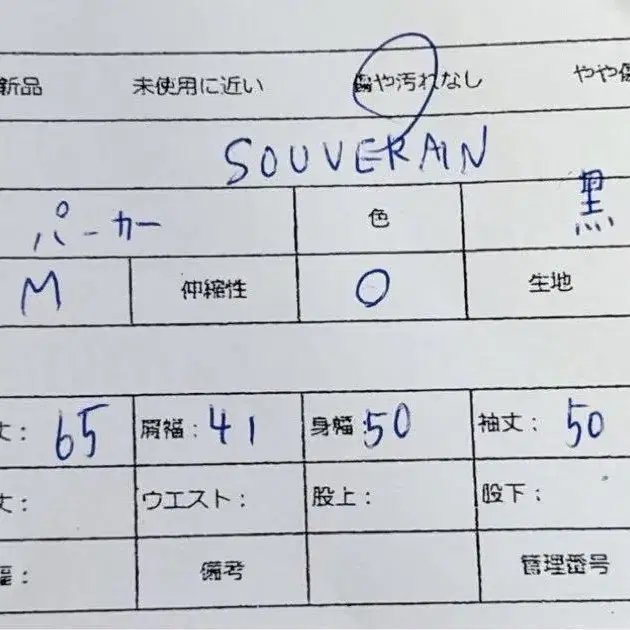 新品 未使用に近い 傷や汚れなし やや傷
SOUVERAIN
パーカー 色 黒
M 伸縮性 ○ 生地
丈: 65 肩幅: 41 身幅: 50 袖丈: 50
丈: ウエスト: 股上: 股下:
幅: 備考 管理番号